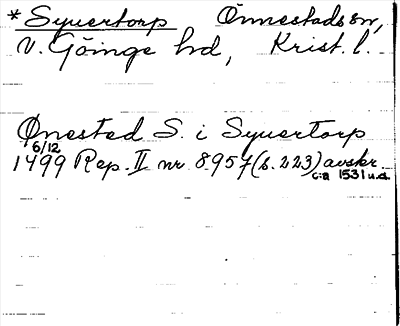 *Syuertorp Önnestads sn,
V. Göinge hd, Krist. l.
Ønested S. i Syuertorp
6/12
1499 Rep. II nr 8957 (s. 223) avskr.
c:a 1531 u.d.